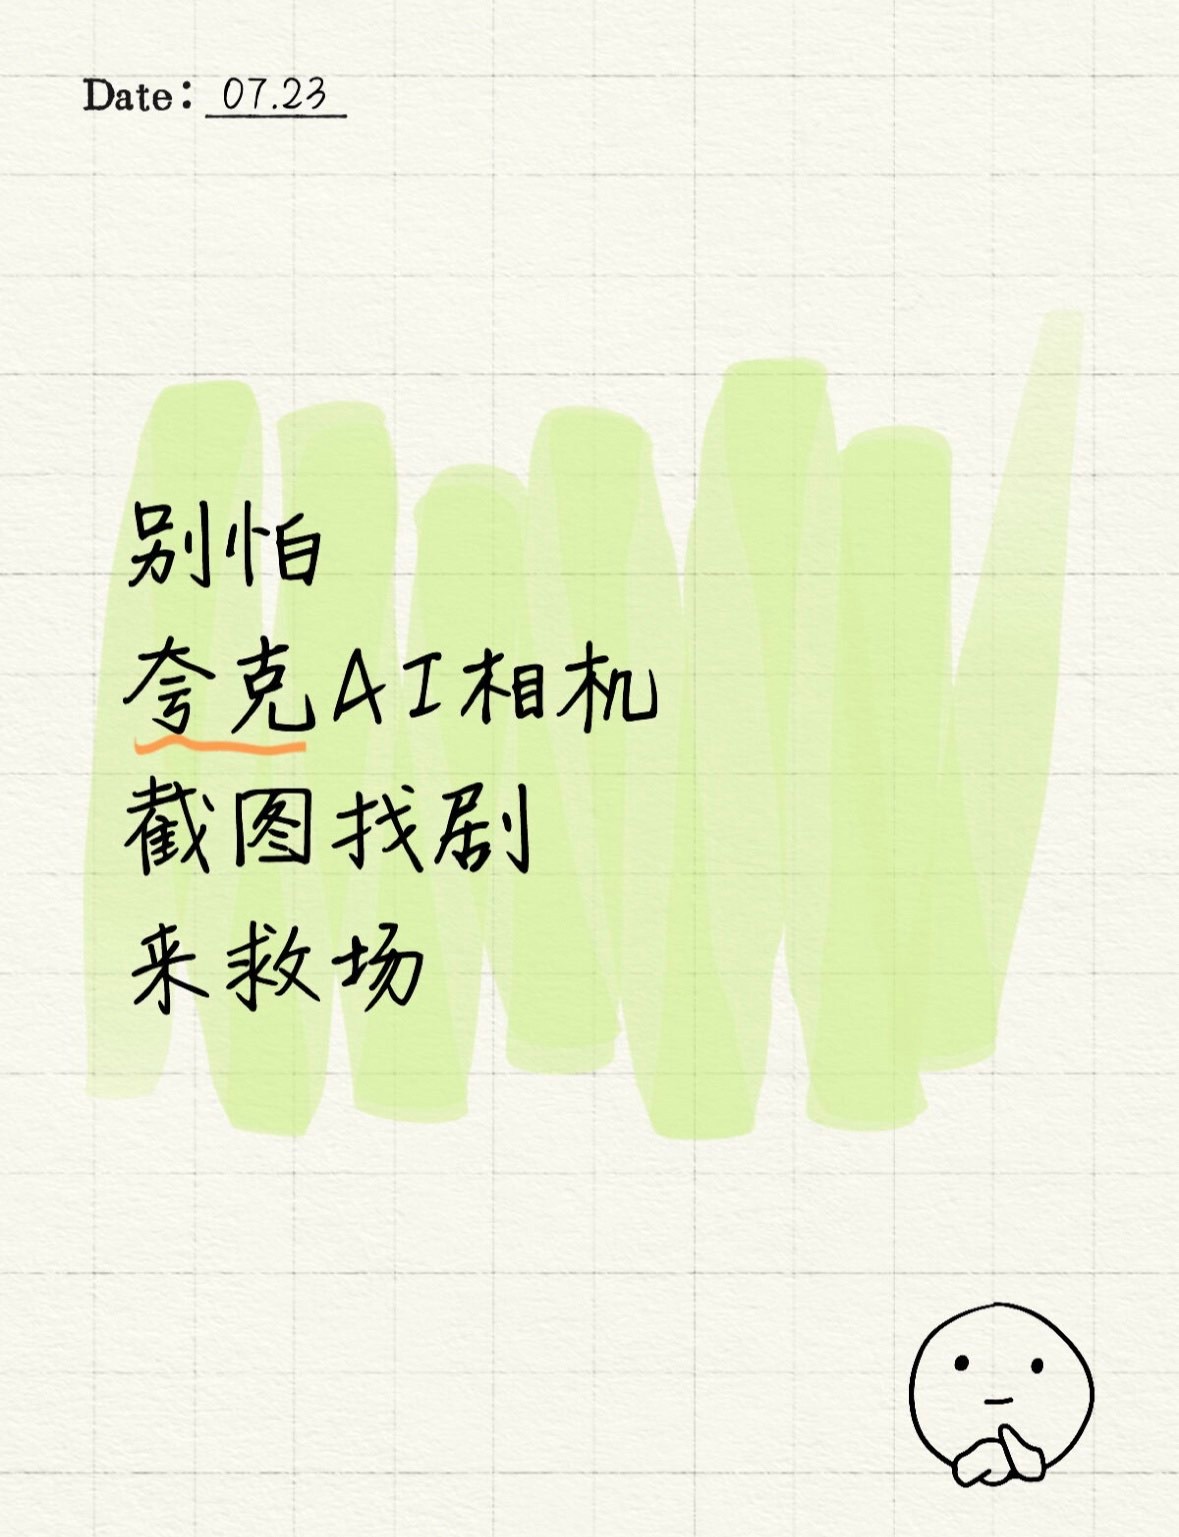 Date: 07.23
别怕
夸克AI相机
截图找剧
来救场